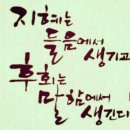 지혜는
들음에서
생기고
후회는
말함에서
생긴다